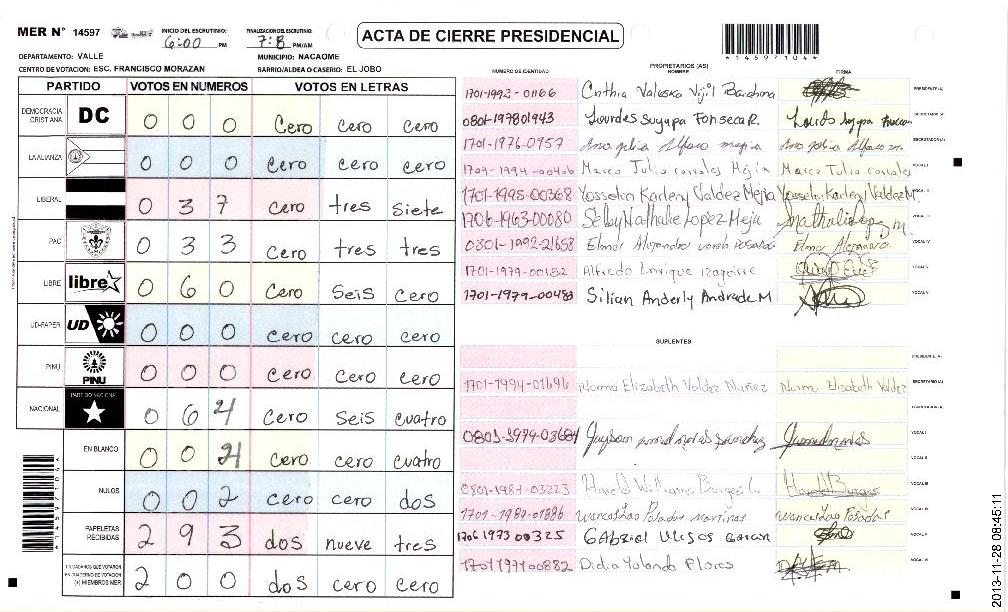 MER N° 14597 INICIO DEL ESCRUTINIO: 6:00 PM FINALIZACION DEL ESCRUTINIO: 7:8 PM/AM ACTA DE CIERRE PRESIDENCIAL
*1459710 4*
DEPARTAMENTO: VALLE MUNICIPIO: NACAOME
CENTRO DE VOTACION: ESC. FRANCISCO MORAZAN BARRIO/ALDEA O CASERIO: EL JOBO
PARTIDO VOTOS EN NUMEROS VOTOS EN LETRAS
DEMOCRACIA CRISTIANA DC 0 0 0 Cero cero cero
LA ALIANZA 0 0 0 cero cero cero
LIBERAL 0 3 7 cero tres siete
PAC 0 3 3 cero tres tres
LIBRE libre 0 6 0 Cero Seis Cero
UD-FAPER UD 0 0 0 cero cero cero
PINU PINU 0 0 0 cero cero cero
NACIONAL PARTIDO NACIONAL 0 6 4 Cero Seis cuatro
EN BLANCO 0 0 4 cero cero cuatro
NULOS 0 0 2 cero cero dos
PAPELETAS RECIBIDAS 2 9 3 dos nueve tres
CIUDADANOS QUE VOTARON EN CUADERNO DE VOTACION (+) MIEMBROS MER 2 0 0 dos cero cero
NUMERO DE IDENTIDAD PROPIETARIOS (AS) NOMBRE FIRMA
1701-1992-01166 Cinthia Valeska Vijil Barahona PRESIDENTE (A)
0801-197801943 Lourdes Suyapa Fonseca R. SECRETARIO (A)
1701-1976-0757 Ana Alfaro ESCRUTADOR (A)
Marco Tulio corrales Mejia Marco Tulio corrales VOCAL I
1701-1995-00368 Yosselin Karleny Valdez Mejia Yosselin Karleny Valdez M. VOCAL II
1706-1963-00080 Selby Nathalie Lopez Mejia Nathalie Lopez m. VOCAL III
0801-1992-21658 Elmer Alejandro Elmer Alejandro VOCAL IV
1701-1979-00182 Alfredo Enrique Izaguirre VOCAL V
1701-1979-00483 Silian Anderly Andrade M VOCAL VI
SUPLENTES
PRESIDENTE (A)
1701-1994-01696 Norma Elizabeth Valdez Nuñez Norma Elizabeth Valdez SECRETARIO (A)
ESCRUTADOR (A)
VOCAL I
VOCAL II
0801-1987-03223 Harold Williams Borges L. Harold Burges VOCAL III
1701-1989-01886 Wenceslao Posadas Martinez Wenceslao Posadas VOCAL IV
1706 1973 00325 Gabriel Ulises VOCAL V
1701 1971 00882 Didia Yolanda Flores VOCAL VI
2013-11-28 08:45:11